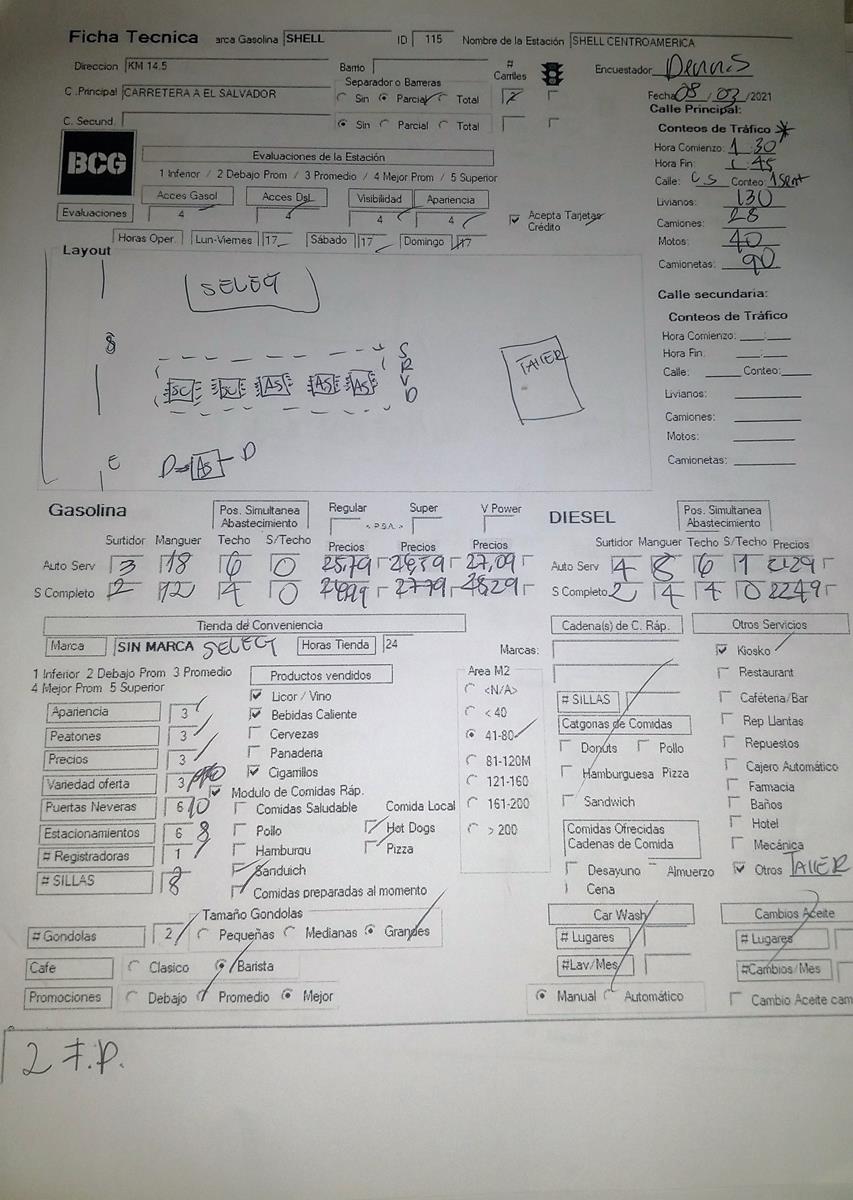 Ficha Tecnica arca Gasolina SHELL ID 115 Nombre de la Estación SHELL CENTROAMERICA
Direccion KM 14.5 Barrio # Carriles Encuestador Dennis
Separador o Barreras
C.Principal CARRETERA A EL SALVADOR Sin Parcial Total 2 Fecha 08/03/2021
Calle Principal:
C. Secund. Sin Parcial Total
Conteos de Tráfico *
BCG
Evaluaciones de la Estación
Hora Comienzo: 1:30
1 Inferior / 2 Debajo Prom / 3 Promedio / 4 Mejor Prom / 5 Superior
Hora Fin: 1:45
Acces Gasol Acces Dsl. Visibilidad Apariencia
Calle: CS Conteo: 1 sent
Evaluaciones 4 4 4 4
Acepta Tarjetas Crédito
Livianos: 130
Camiones: 28
Horas Oper. Lun-Viernes 17 Sábado 17 Domingo 17
Motos: 40
Camionetas: 90
Layout
SELECT
Calle secundaria:
Conteos de Tráfico
Hora Comienzo:
Hora Fin:
Calle: Conteo:
Livianos:
Camiones:
Motos:
Camionetas:
S
SC SC AS AS AS
S
R
V
D
TALLER
E D AS D
Gasolina
Pos. Simultanea Abastecimiento
Regular Super V Power
< P.S.A. >
DIESEL
Pos. Simultanea Abastecimiento
Surtidor Manguer Techo S/Techo Precios Precios Precios
Surtidor Manguer Techo S/Techo Precios
Auto Serv 3 18 6 0 25,79 26,59 27,09
Auto Serv 4 8 6 1
S Completo 2 12 4 0 2779
S Completo 2 4 4 0 2249
Tienda de Conveniencia
Cadena(s) de C. Ráp. Otros Servicios
Marca SIN MARCA SELECT Horas Tienda 24
Marcas:
1 Inferior 2 Debajo Prom 3 Promedio
4 Mejor Prom 5 Superior
Productos vendidos
Apariencia 3
Peatones 3
Precios 3
Variedad oferta 3
Puertas Neveras 6 10
Estacionamientos 6 8
# Registradoras 1
# SILLAS 8
Licor / Vino
Bebidas Caliente
Cervezas
Panaderia
Cigarrillos
Modulo de Comidas Ráp.
Comidas Saludable Comida Local
Pollo Hot Dogs
Hamburgu Pizza
Sanduich
Comidas preparadas al momento
Area M2
<N/A>
< 40
41-80
81-120M
121-160
161-200
> 200
# SILLAS
Catgorias de Comidas
Donuts Pollo
Hamburguesa Pizza
Sandwich
Comidas Ofrecidas
Cadenas de Comida
Desayuno Almuerzo
Cena
Kiosko
Restaurant
Caféteria/Bar
Rep Llantas
Repuestos
Cajero Automático
Farmacia
Baños
Hotel
Mecánica
Otros TALLER
Tamaño Gondolas
# Gondolas 2 Pequeñas Medianas Grandes
Cafe Clasico Barista
Promociones Debajo Promedio Mejor
Car Wash
# Lugares
#Lav/Mes
Manual Automático
Cambios Aceite
# Lugares
#Cambios/Mes
Cambio Aceite cam
2 F.P.